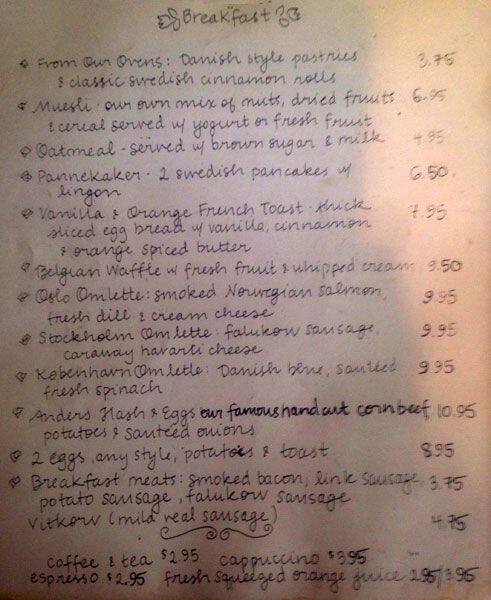 Breakfast
From Our Ovens: Danish style pastries 3.75
& classic swedish cinnamon rolls
Muesli - our own mix of nuts, dried fruits 6.95
& cereal served w/ yogurt or fresh fruit
Oatmeal - served w/ brown sugar & milk 4.95
Pannekaker - 2 swedish pancakes w/ 6.50
lingon
Vanilla & Orange French Toast - thick 7.95
sliced egg bread w/ vanilla, cinnamon
& orange spiced butter
Belgian Waffle w/ fresh fruit & whipped cream 9.50
Oslo Omlette: smoked Norwegian salmon, 9.95
fresh dill & cream cheese
Stockholm Omlette: falukorv sausage, 9.95
caraway havarti cheese
København Omlette: Danish blue, sautéed 9.95
fresh spinach
Anders Hash & Eggs our famous hand cut corn beef, 10.95
potatoes & sauteed onions
2 eggs, any style, potatoes & toast 8.95
Breakfast meats: smoked bacon, link sausage, 3.75
potato sausage, falukorv sausage
Vitkorv (mild veal sausage) 4.75
coffee & tea $2.95 cappuccino $3.95
espresso $2.95 fresh squeezed orange juice 2.95/3.95